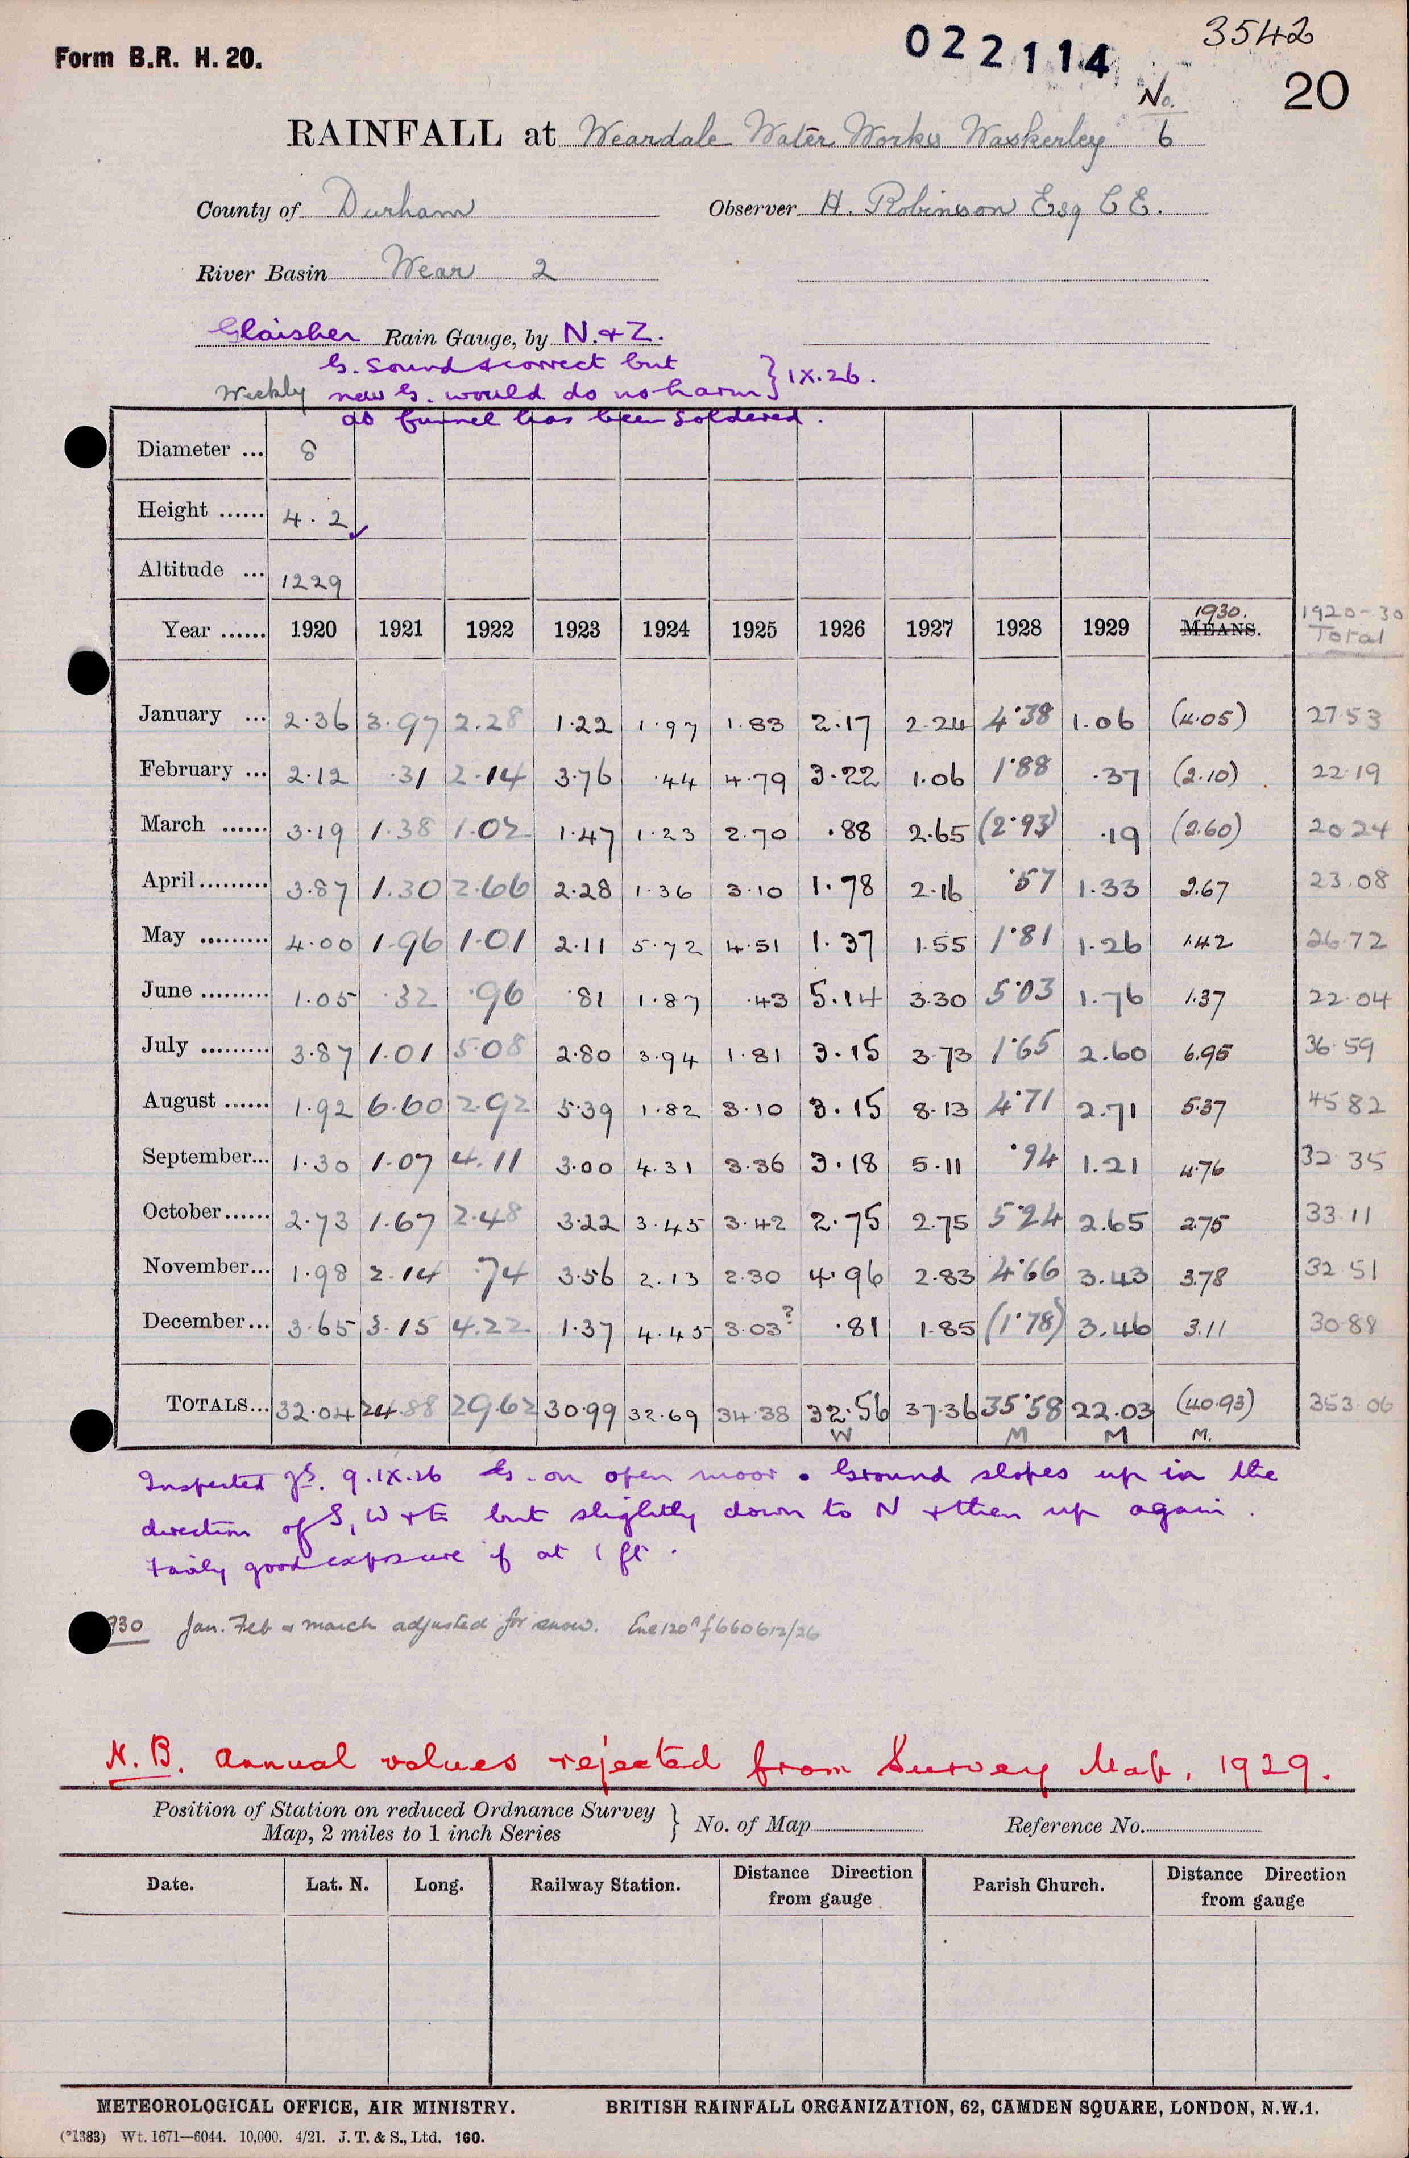 Form B.R. H. 20.
022114
3542
20
RAINFALL at Weardale Water Works Waskerley No. 6
County of Durham Observer H. Robinson Esq C E.
River Basin Wear 2
Glaisher Rain Gauge, by N. + Z.
G. sound & correct but
Weekly new G. would do no harm } IX.26.
as funnel has been soldered.
Diameter ... 8
Height ...... 4.2 ✓
Altitude ... 1229
Year ...... 1920 1921 1922 1923 1924 1925 1926 1927 1928 1929 MEANS. 1930. 1920-30 Total
January ... 2.36 3.97 2.28 1.22 1.97 1.83 2.17 2.24 4.38 1.06 (4.05) 27 53
February ... 2.12 .31 2.14 3.76 .44 4.79 3.22 1.06 1.88 .37 (2.10) 22.19
March ...... 3.19 1.38 1.02 1.47 1.23 2.70 .88 2.65 (2.93) .19 (2.60) 20 24
April ......... 3.87 1.30 2.66 2.28 1.36 3.10 1.78 2.16 .57 1.33 2.67 23.08
May ......... 4.00 1.96 1.01 2.11 5.72 4.51 1.37 1.55 1.81 1.26 1.42 26.72
June ......... 1.05 .32 .96 .81 1.87 .43 5.14 3.30 5.03 1.76 1.37 22.04
July ......... 3.87 1.01 5.08 2.80 3.94 1.81 3.15 3.73 1.65 2.60 6.95 36.59
August ...... 1.92 6.60 2.92 5.39 1.82 3.10 3.15 8.13 4.71 2.71 5.37 45 82
September... 1.30 1.07 4.11 3.00 4.31 3.36 3.18 5.11 .94 1.21 4.76 32 35
October...... 2.73 1.67 2.48 3.22 3.45 3.42 2.75 2.75 5.24 2.65 2.75 33.11
November... 1.98 2.14 .74 3.56 2.13 2.30 4.96 2.83 4.66 3.43 3.78 32.51
December... 3.65 3.15 4.22 1.37 4.45 3.03? .81 1.85 (1.78) 3.46 3.11 30.88
TOTALS... 32.04 24.88 29.62 30.99 32.69 34.38 32.56 37.36 35.58 22.03 (40.93) 353 06
W M M M.
Inspected 9.IX.26 G. on open moor. Ground slopes up in the
direction of S, W + E but slightly down to N + then up again.
Fairly good exposure if at 1 ft.
1930 Jan. Feb & march adjusted for snow.
N.B. Annual values rejected from Survey Map, 1929.
Position of Station on reduced Ordnance Survey Map, 2 miles to 1 inch Series } No. of Map Reference No.
Date. Lat. N. Long. Railway Station. Distance Direction from gauge Parish Church. Distance Direction from gauge
METEOROLOGICAL OFFICE, AIR MINISTRY. BRITISH RAINFALL ORGANIZATION, 62, CAMDEN SQUARE, LONDON, N.W.1.
(*1383) Wt. 1671—6044. 10,000. 4/21. J. T. & S., Ltd. 160.